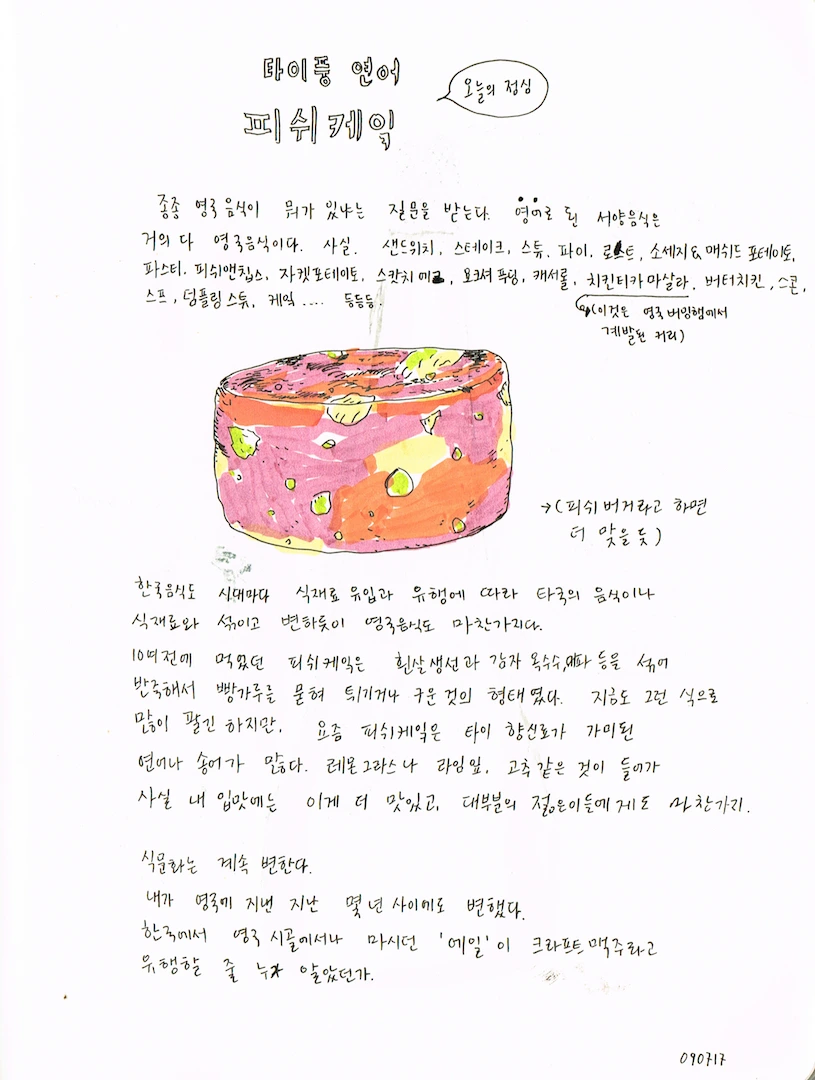 타이풍 연어
피쉬케잌
오늘의 점심
종종 영국음식이 뭐가 있냐는 질문을 받는다. 영어로 된 서양음식은
거의 다 영국음식이다. 사실. 샌드위치, 스테이크, 스튜, 파이, 로스트, 소세지&매쉬드 포테이토,
파스티, 피쉬앤칩스, 자켓포테이토, 스캇치에그, 요크셔 푸딩, 캐서롤, 치킨티카마살라, 버터치킨, 스콘,
스프, 덤플링스튜, 케잌 .... 등등등.
(이것은 영국 버밍햄에서
계발된 커리)
→(피쉬버거라고 하면
더 맞을 듯)
한국음식도 시대마다 식재료 유입과 유행에 따라 타국의 음식이나
식재료와 섞이고 변하듯이 영국음식도 마찬가지다.
10여전에 먹었던 피쉬케잌은 흰살생선과 감자 옥수수, 대파 등을 섞어
반죽해서 빵가루를 묻혀 튀기거나 구운 것의 형태였다. 지금도 그런 식으로
많이 팔긴 하지만, 요즘 피쉬케잌은 타이 향신료가 가미된
연어나 송어가 많다. 레몬그라스나 라임잎, 고추같은 것이 들어가
사실 내 입맛에는 이게 더 맛있고, 대부분의 젊은이들에게도 마찬가지.
식문화는 계속 변한다.
내가 영국에 지낸 지난 몇 년 사이에도 변했다.
한국에서 영국 시골에서나 마시던 '에일'이 크라프트맥주라고
유행할 줄 누가 알았던가.
090717